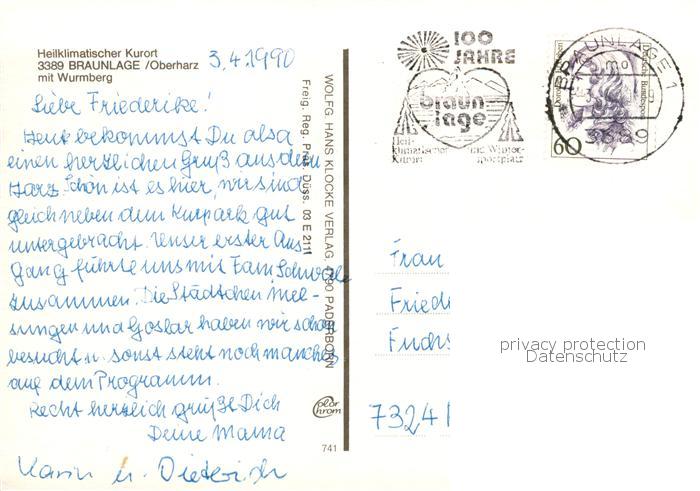 Heilklimatischer Kurort
3389 BRAUNLAGE /Oberharz
mit Wurmberg
3.4.1990
Liebe Friederike!
Heut bekommst Du also
einen herzlichen Gruß aus dem
Harz. Schön ist es hier, wir sind
gleich neben dem Kurpark gut
untergebracht. Unser erster Aus-
gang führte uns mit Fam.
zusammen. Die Städtchen
und Goslar haben wir schon
besucht u. sonst steht noch manches
auf dem Programm.
Recht herzlich grüßt Dich
Deine Mama
Karin u. Dieterich
WOLFG. HANS KLOCKE VERLAG, 4790 PADERBORN
Freig. Reg. Präs. Düss. 03 E 2111
color
chrom
741
100
JAHRE
braun
lage
Heil-
klimatischer
Kurort
und Winter-
sportplatz
BRAUNLAGE 1
3389
Deutsche Bundespost
60
Frau
Fried
Fuchs
7324
privacy protection
Datenschutz